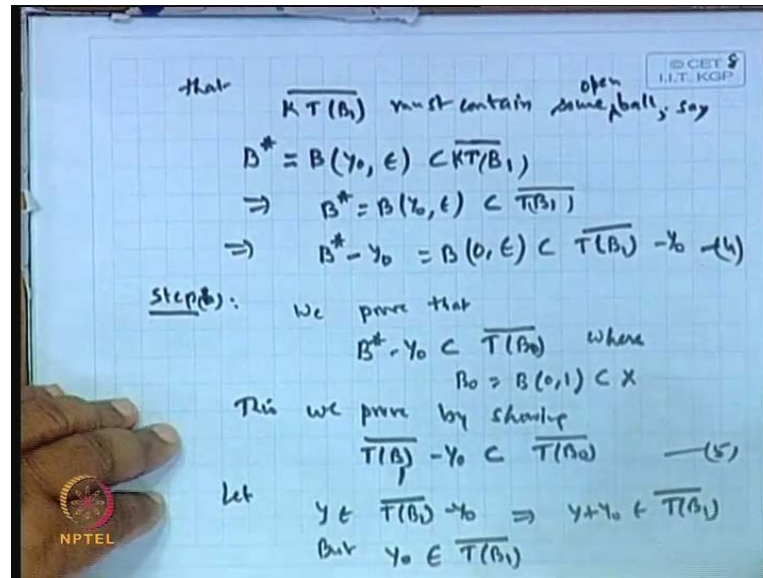 © CET 8
I.I.T. KGP
that
open
\overline{KT(B_1)} must contain some ball, say
B^* = B(y_0, ε) ⊂ \overline{KT(B_1)}
⇒ B^* = B(y_0, ε) ⊂ \overline{T(B_1)}
⇒ B^* - y_0 = B(0, ε) ⊂ \overline{T(B_1)} - y_0 -(4)
Step(b): We prove that
B^* - y_0 ⊂ \overline{T(B_0)} where
B_0 = B(0,1) ⊂ X
This we prove by showing
\overline{T(B_1)} - y_0 ⊂ \overline{T(B_0)} —(5)
Let
y ∈ \overline{T(B_1)} - y_0 ⇒ y + y_0 ∈ \overline{T(B_1)}
But y_0 ∈ \overline{T(B_1)}
NPTEL